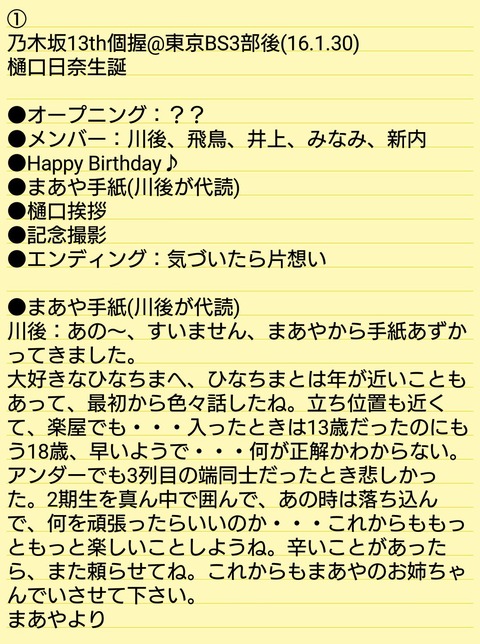 ①
乃木坂13th個握@東京BS3部後(16.1.30)
樋口日奈生誕
●オープニング：？？
●メンバー：川後、飛鳥、井上、みなみ、新内
●Happy Birthday♪
●まあや手紙(川後が代読)
●樋口挨拶
●記念撮影
●エンディング：気づいたら片想い
●まあや手紙(川後が代読)
川後：あの〜、すいません、まあやから手紙あずか
ってきました。
大好きなひなちまへ、ひなちまとは年が近いことも
あって、最初から色々話したね。立ち位置も近く
て、楽屋でも・・・入ったときは13歳だったのにも
う18歳、早いようで・・・何が正解かわからない。
アンダーでも3列目の端同士だったとき悲しかっ
た。2期生を真ん中で囲んで、あの時は落ち込ん
で、何を頑張ったらいいのか・・・これからももっ
ともっと楽しいことしようね。辛いことがあった
ら、また頼らせてね。これからもまあやのお姉ちゃ
んでいさせて下さい。
まあやより